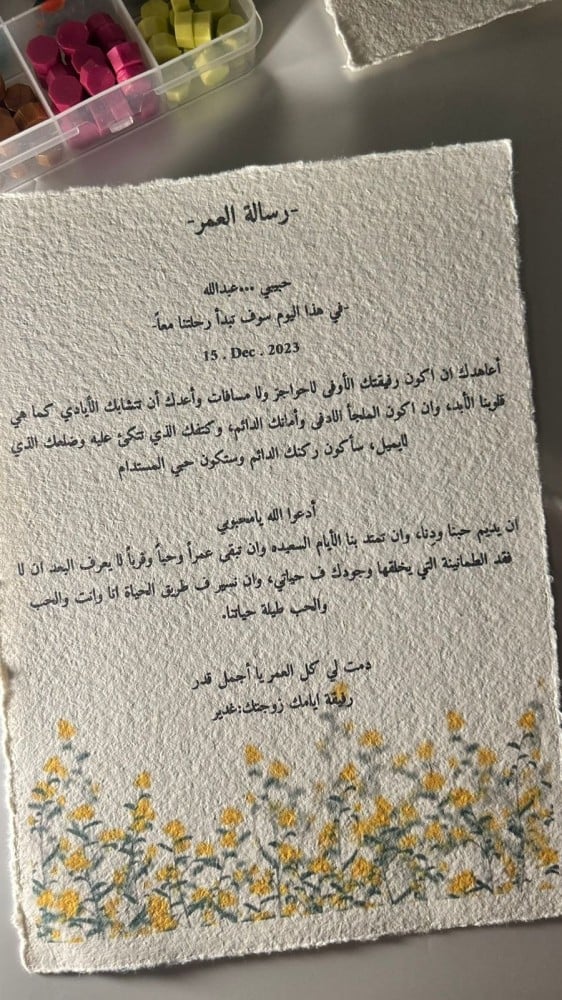 -رسالة العمر-
حبيبي ...عبدالله
-في هذا اليوم سوف تبدأ رحلتنا معاً-
15 . Dec . 2023
أعاهدك ان اكون رفيقتك الأوفى لاحواجز ولا مسافات وأعدك أن تتشابك الأيادي كما هي
قلوبنا الأبد، وان اكون الملجأ الادفى وأمانك الدائم، وكتفك الذي تتكئ عليه وضلعك الذي
لايميل، سأكون ركنك الدائم وستكون حبي المستدام
أدعوا الله يامحبوبي
ان يديم حبنا ودنا، وان تمتد بنا الأيام السعيده وان تبقى عمراً وحباً وقرباً لا يعرف البعد ان لا
فقد الطمانينة التي يخلقها وجودك ف حياتي، وان نسير ف طريق الحياة انا وانت والحب
والحب طيلة حياتنا.
دمت لي كل العمر يا أجمل قدر
رفيقة ايامك زوجتك:غدير